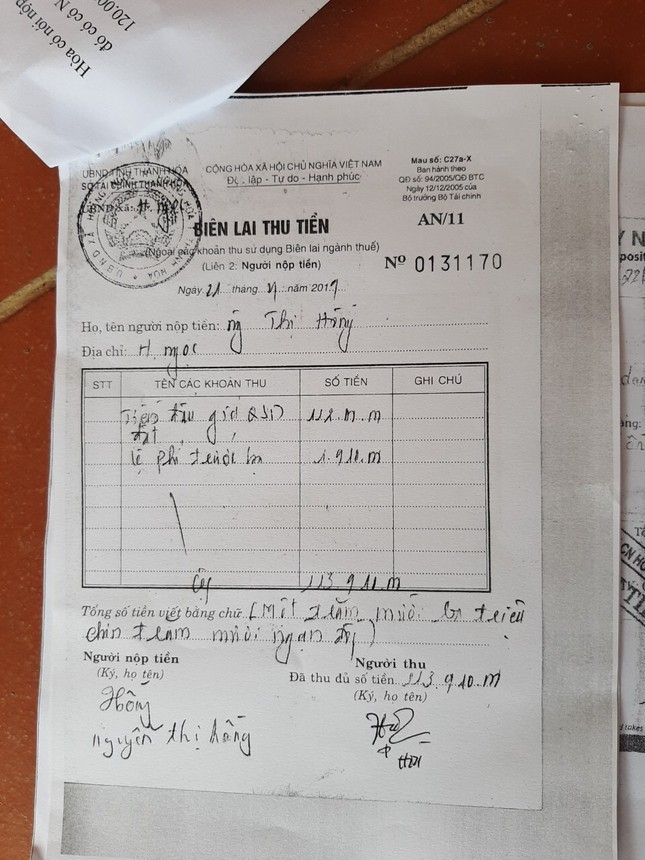 Hòa có nơi nộp
120.00
đó có có N
UBND TỈNH THANH HÓA
SỞ TÀI CHÍNH THANH HÓA
UBND xã: H. Ngọc
CỘNG HÒA XÃ HỘI CHỦ NGHĨA VIỆT NAM
Độc lập - Tự do - Hạnh phúc
Mẫu số: C27a-X
Ban hành theo
QĐ số: 94/2005/QĐ BTC
Ngày 12/12/2005 của
Bộ trưởng Bộ Tài chính
AN/11
BIÊN LAI THU TIỀN
(Ngoại các khoản thu sử dụng Biên lai ngành thuế)
(Liên 2: Người nộp tiền)
Nº 0131170
Ngày 21 tháng năm 201
Họ, tên người nộp tiền: ng Thị Hồng
Địa chỉ: H. Ngọc
STT TÊN CÁC KHOẢN THU SỐ TIỀN GHI CHÚ
Tiền đấu giá QSD 112.m.m
đất
lệ phí trước bạ 1.910.m
Cộng 113.910.m
Tổng số tiền viết bằng chữ (Một trăm mười ba triệu
chín trăm mười ngàn đồng)
Người nộp tiền
(Ký, họ tên)
Hồng
nguyễn thị hồng
Người thu
Đã thu đủ số tiền 113.910.m
(Ký, họ tên)